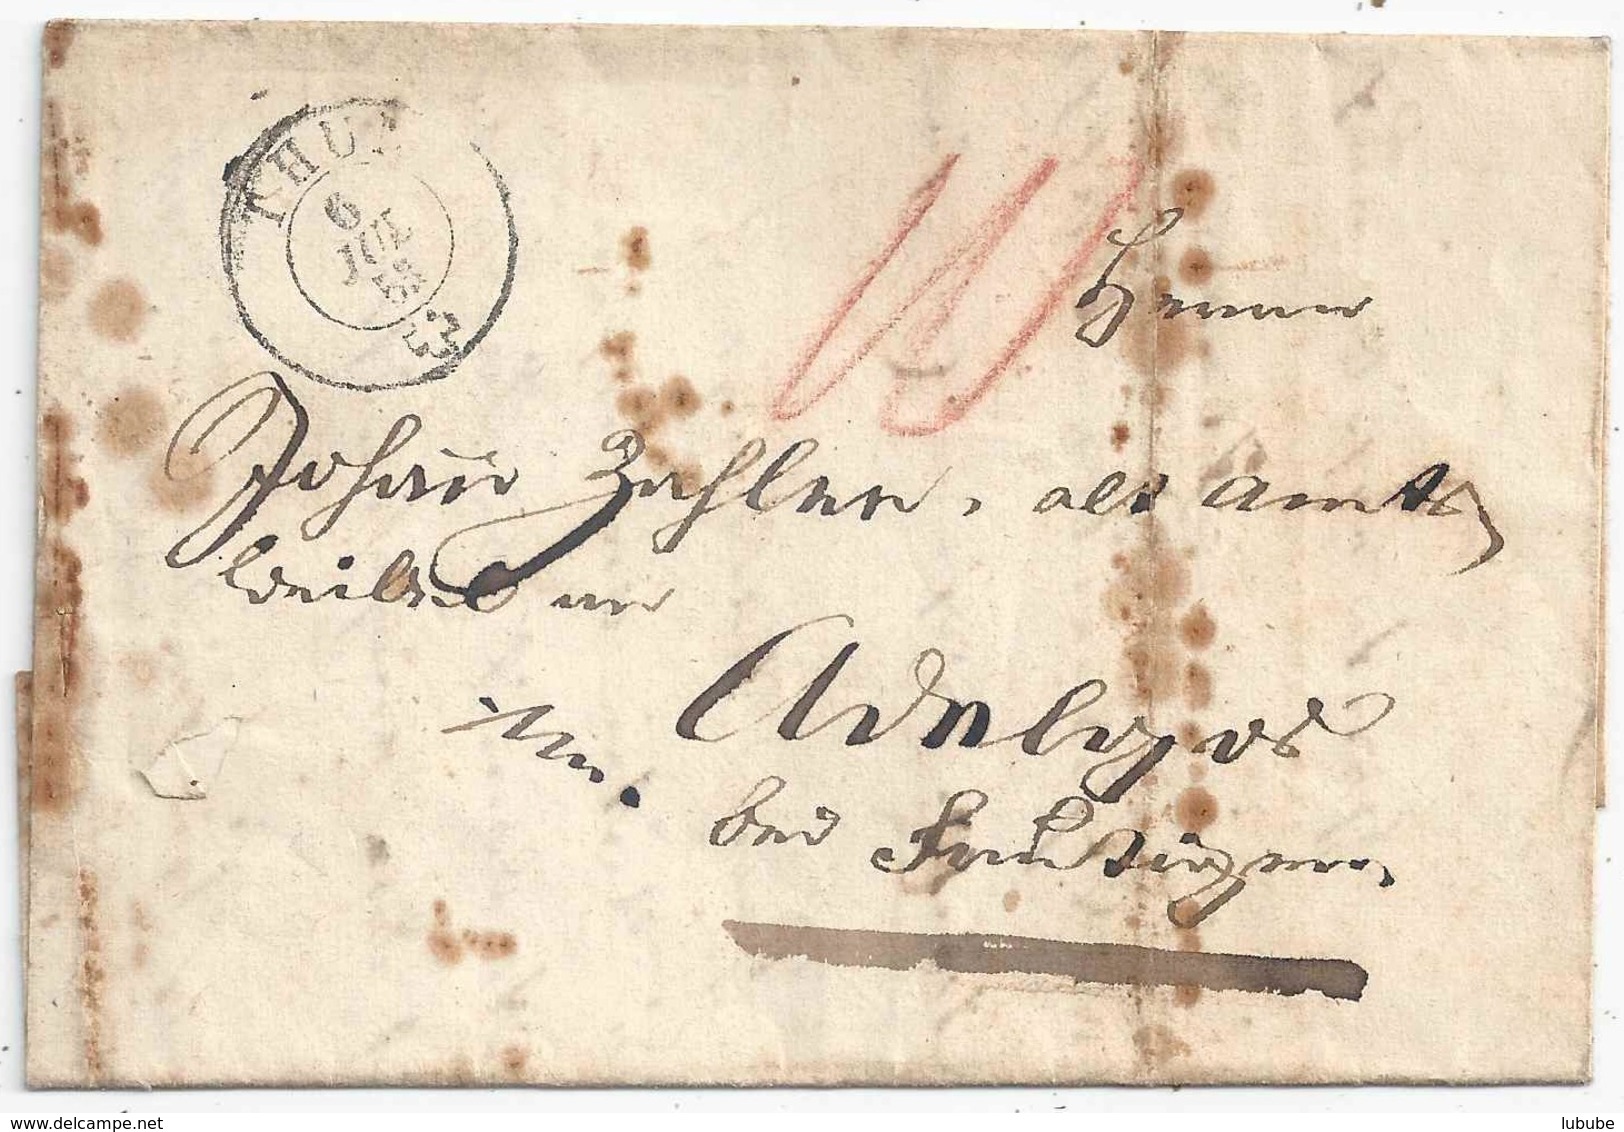 THUN
6
JUL
53
Herrn
Johañ Zahler, alt Amts
weibel
in Adelbod
bei Frutigen.
www.delcampe.net
lubube